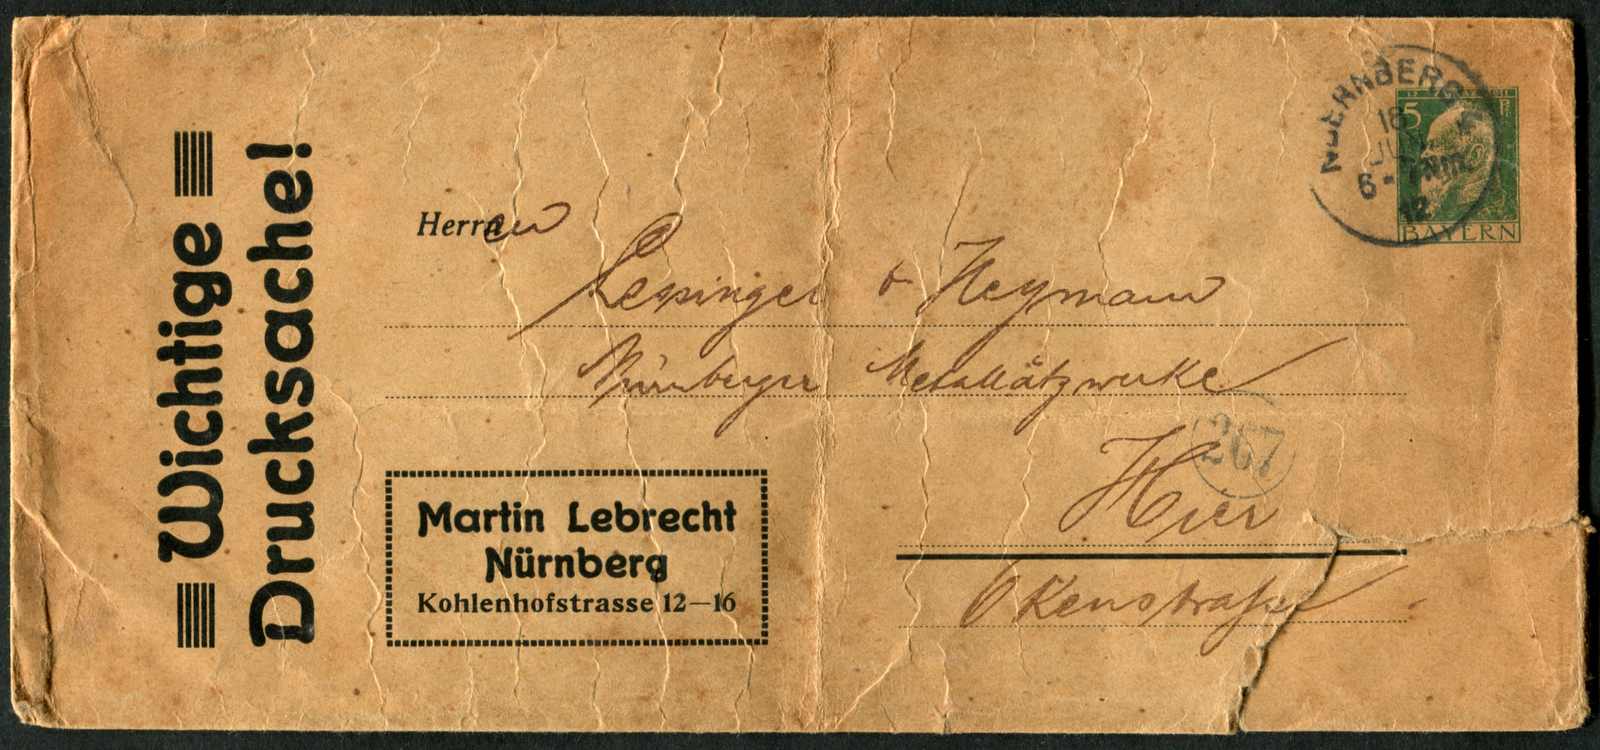 Wichtige
Drucksache!
NUERNBERG
18
JU
6-7 NM
12
5 PF
BAYERN
Herren
& Heymann
Nürnberger Metallätzwerke
267
Hier
Okenstraße
Martin Lebrecht
Nürnberg
Kohlenhofstrasse 12—16